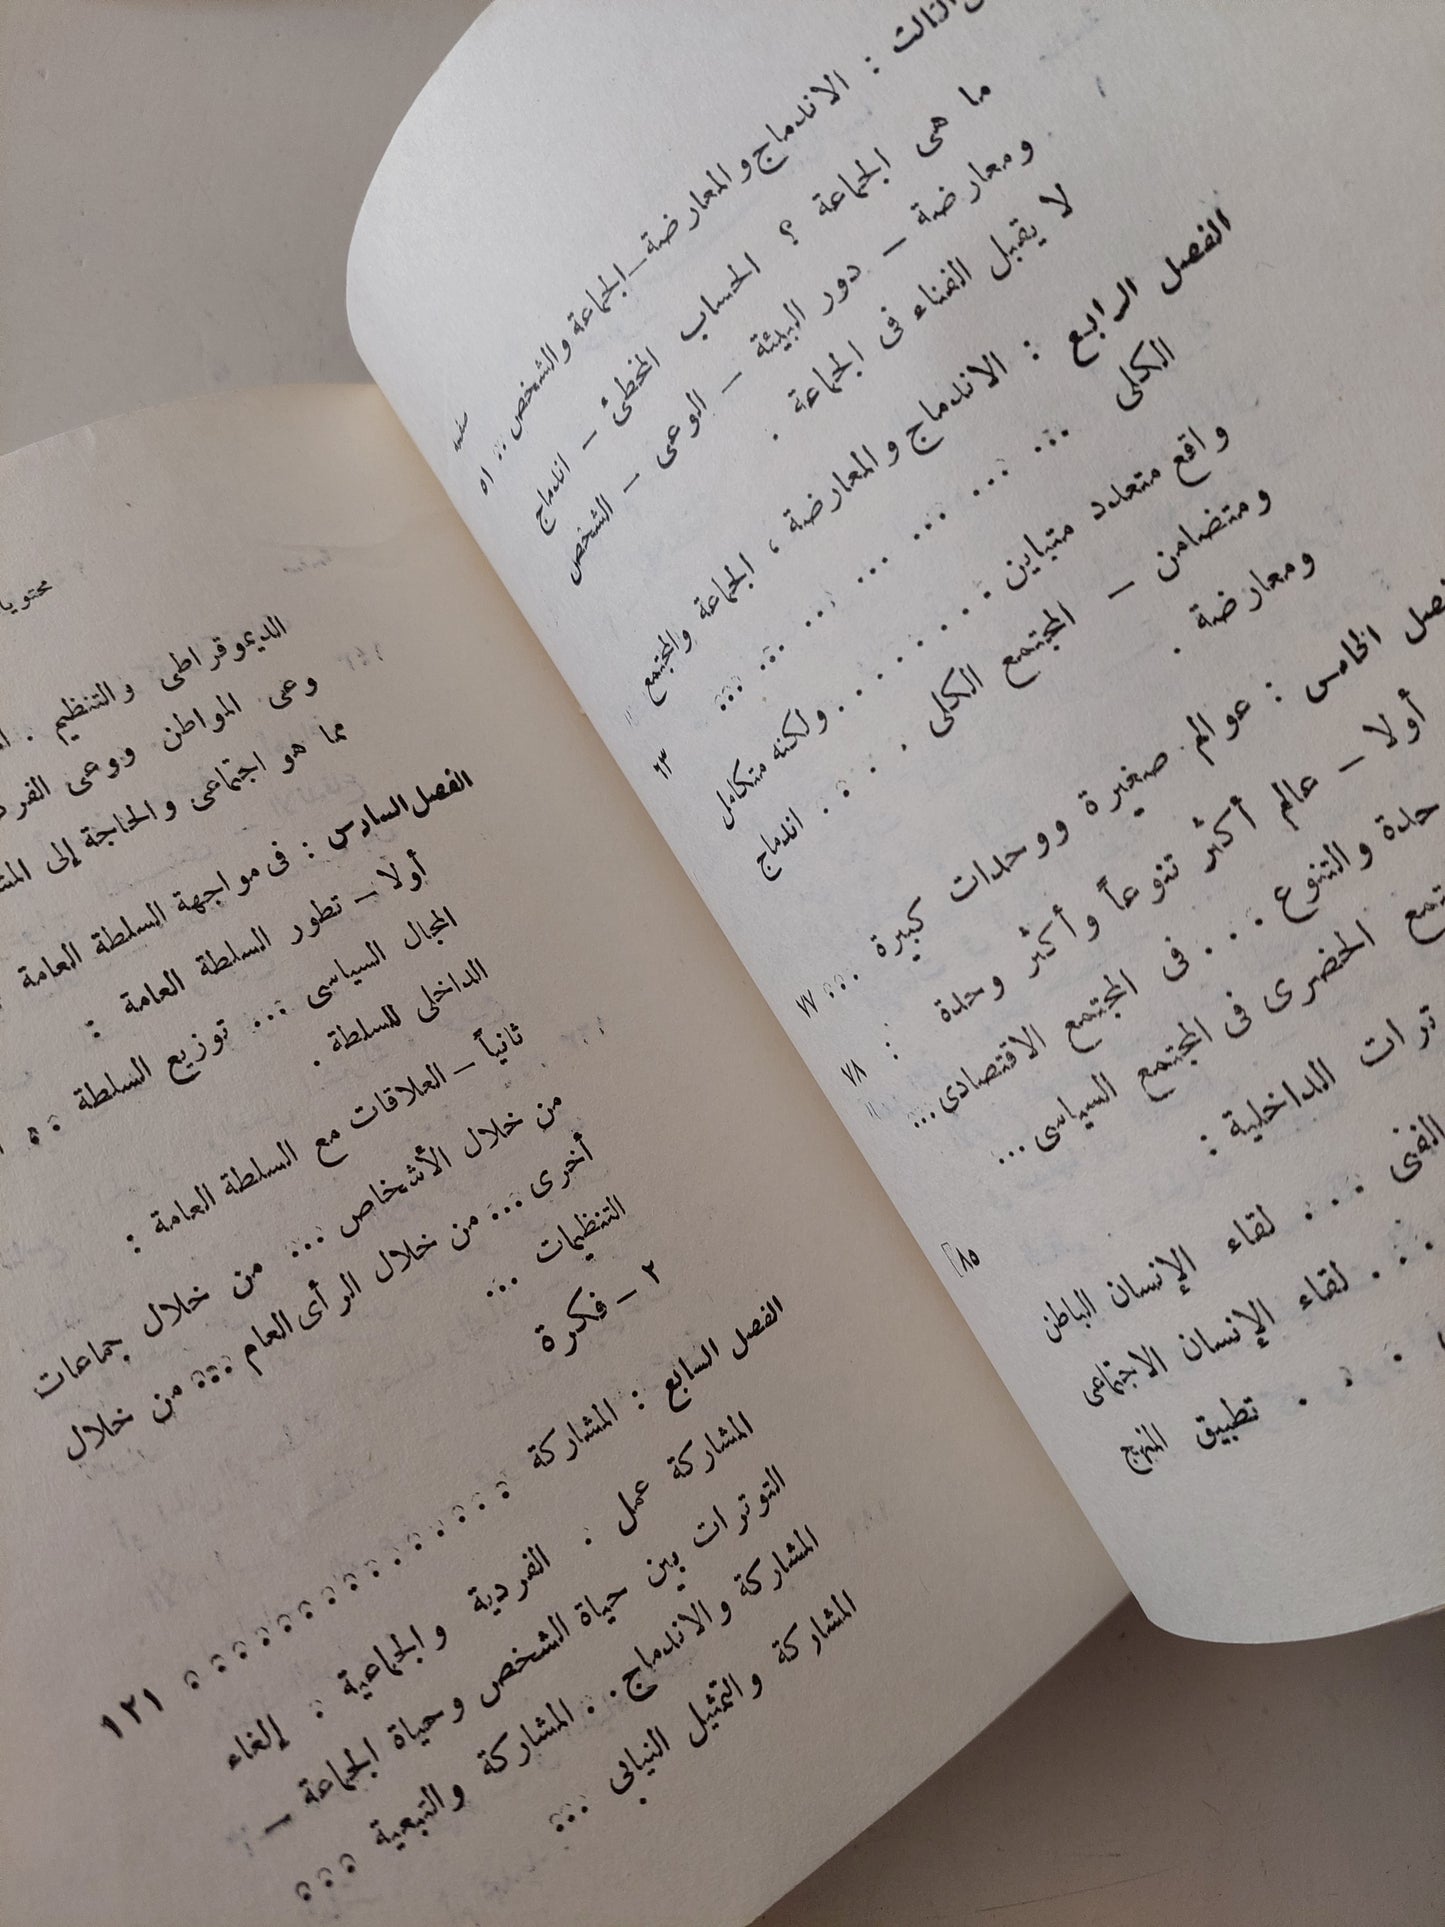 الثالث : الاندماج والمعارضة - الجماعة والشخص ... ٥١
صفحة
ما هى الجماعة ؟ الحساب المخطئ - اندماج
ومعارضة - دور البيئة - الوعى - الشخص
لا يقبل الفناء فى الجماعة .
الفصل الرابع : الاندماج والمعارضة ، الجماعة والمجتمع
الكلى ... ... ... ... ... ... ... ٦٣
واقع متعدد متباين . . . . . . . . ولكنه متكامل
ومتضامن - المجتمع الكلى . . . . . اندماج
ومعارضة .
الخامس : عوالم صغيرة ووحدات كبيرة ... ٧٧
أولا - عالم أكثر تنوعاً وأكثر وحدة : ٧٨
والتنوع . . . فى المجتمع الاقتصادى ...
الحضرى فى المجتمع السياسى ...
الداخلية : ٨٥
الفنى . . . لقاء الإنسان الباطن
. . . لقاء الإنسان الاجتماعى
. . . تطبيق المنهج
الديموقراطى والتنظيم .
وعى المواطن ووعى
مما هو اجتماعى والحاجة إلى
الفصل السادس : فى مواجهة السلطة العامة
أولا - تطور السلطة العامة :
المجال السياسى ... توزيع السلطة ..
الداخلى للسلطة .
ثانياً - العلاقات مع السلطة العامة :
من خلال الأشخاص ... من خلال جماعات
أخرى ... من خلال الرأى العام ... من خلال
التنظيمات ...
٢ - فكرة
الفصل السابع : المشاركة . . . . . . . . . . . . . ١٢١
المشاركة عمل . الفردية والجماعية : إلغاء
التوترات بين حياة الشخص وحياة الجماعة -
المشاركة والاندماج . . المشاركة والتبعية ...
المشاركة والتمثيل النيابى ...